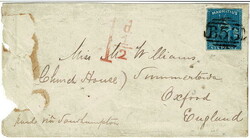 MAURITIUS
B53
Miss Williams
(Church House) Summertown
Oxford
England
via Southampton